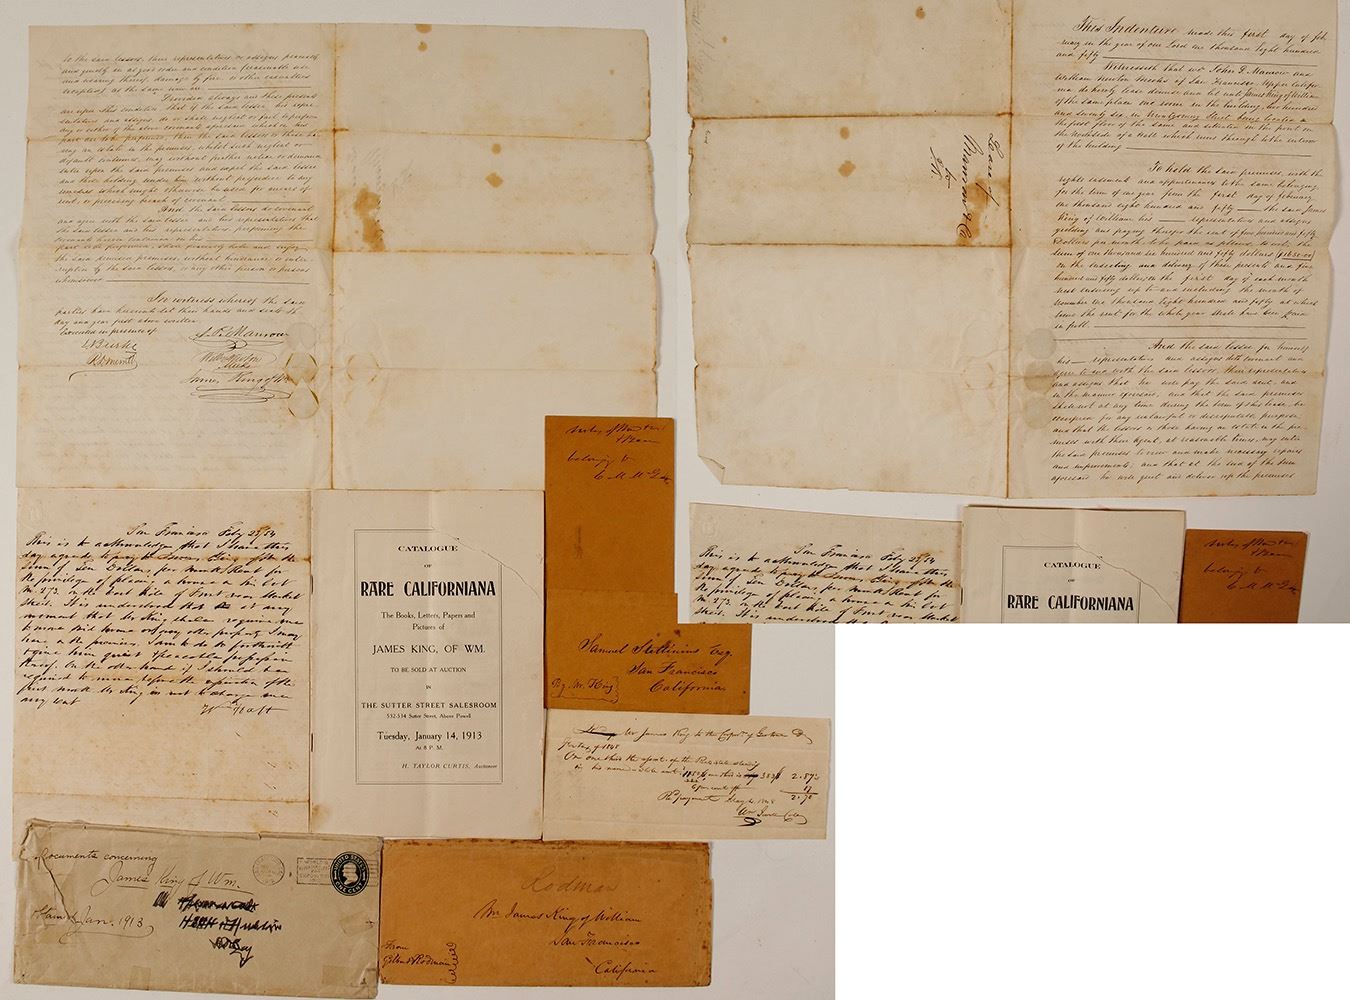 to the said lessors, their representatives or assigns peaceably
and quietly in as good order and condition (reasonable use
and wearing thereof, damage by fire or other casualties
excepted) as the same now are.
Provided always and these presents
are upon this condition that if the said lessee his repre-
sentatives and assigns do or shall neglect or fail to perform
any or either of the above covenants
part are to be performed, then the said lessors or those ha-
ving an estate in the premises, whilst such neglect or
default continues, may without further notice or demand
enter upon the said premises and expel the said lessee
and those holding under him without prejudice to any
remedies which might otherwise be used for arrears of
rent, or preceding breach of covenant.
And the said lessors do covenant
and agree with the said lessee and his representatives that
the said lessee and his representatives, performing the
covenants herein contained on his
part to be performed, shall peacefully hold and enjoy
the said demised premises, without hindrance or inter-
ruption by the said lessors, or any other person or persons
whomsoever
In witness whereof the said
parties have hereunto set their hands and seals the
day and year first above written
Executed in presence of
Burke
James King of Wm
This Indenture made this first day of Feb-
ruary in the year of our Lord one thousand eight hundred
and fifty
Witnesseth that we John P. Manrow and
William Newton Meeks of San Francisco Upper Califor-
nia do hereby lease demise and let unto James King of William
of the same place one room in the building, two hundred
and seventy six, in Montgomery Street being located on
the first floor of the same and situated in the front on
the Northside of a Hall which runs through to the interior
of the building
To hold the said premises, with the
rights easement and appurtenances to the same belonging,
for the term of one year from the first day of february
one thousand eight hundred and fifty the said James
King of William his representatives and assigns
yielding and paying therefor the rent of five hundred and fifty
Dollars per month to be paid as follows, To wit, the
sum of one thousand six hundred and fifty dollars ($1650.00)
on the ensealing and delivery of these presents and five
hundred and fifty dollars on the first day of each month
next ensuing up to and including the month of
November one thousand Eight hundred and fifty at which
time the rent for the whole year shall have been paid
in full.
And the said lessee for himself
his representatives and assigns doth covenant and
agree to and with the said lessors, their representatives
and assigns that he will pay the said rent, and
in the manner aforesaid, and that the said premises
shall not at any time during the term of this lease, be
occupied for any unlawful or disreputable purpose
and that the lessors or those having an estate in the pre-
mises with their Agent, at reasonable times, may enter
the said premises to view and make necessary repairs
and improvements; and that at the end of the term
aforesaid he will quit and deliver up the premises
Lease
Manrow &Co
to
San Francisco Feby 25/54
This is to acknowledge that I have this
day agreed to pay to James King of Wm the
sum of Ten Dollars, per month Rent for
the privilege of placing a house on his lot
No. 273. on the East side of Front near Market
Street. It is understood that at any
moment that Mr King shall require me
to move said house or any other property I may
have on the premises. I am to do so forthwith
& give him quiet & peaceable possession
thereof. On the other hand if I should be
required to move, before the expiration of the
first month Mr King is not to charge me
any rent
CATALOGUE
OF
RARE CALIFORNIANA
The Books, Letters, Papers and
Pictures of
JAMES KING, OF WM.
TO BE SOLD AT AUCTION
IN
THE SUTTER STREET SALESROOM
532-534 Sutter Street, Above Powell
Tuesday, January 14, 1913
At 8 P. M.
H. TAYLOR CURTIS, Auctioneer
belonging to
Samuel Stettinius Esq.
San Francisco
California
By Mr. King
Mr James King to the
2.87½
Documents concerning
James King of Wm.
Jan. 1913
UNITED STATES
ONE CENT
Rodman
Mr James King of William
San Francisco
California
From
Gilbert Rodman
San Francisco Feby 25/54
This is to acknowledge that I have this
day agreed to pay to James King of Wm the
sum of Ten Dollars, per month Rent for
the privilege of placing a house on his lot
No. 273. on the East side of Front near Market
Street. It is understood
CATALOGUE
OF
RARE CALIFORNIANA
belonging to